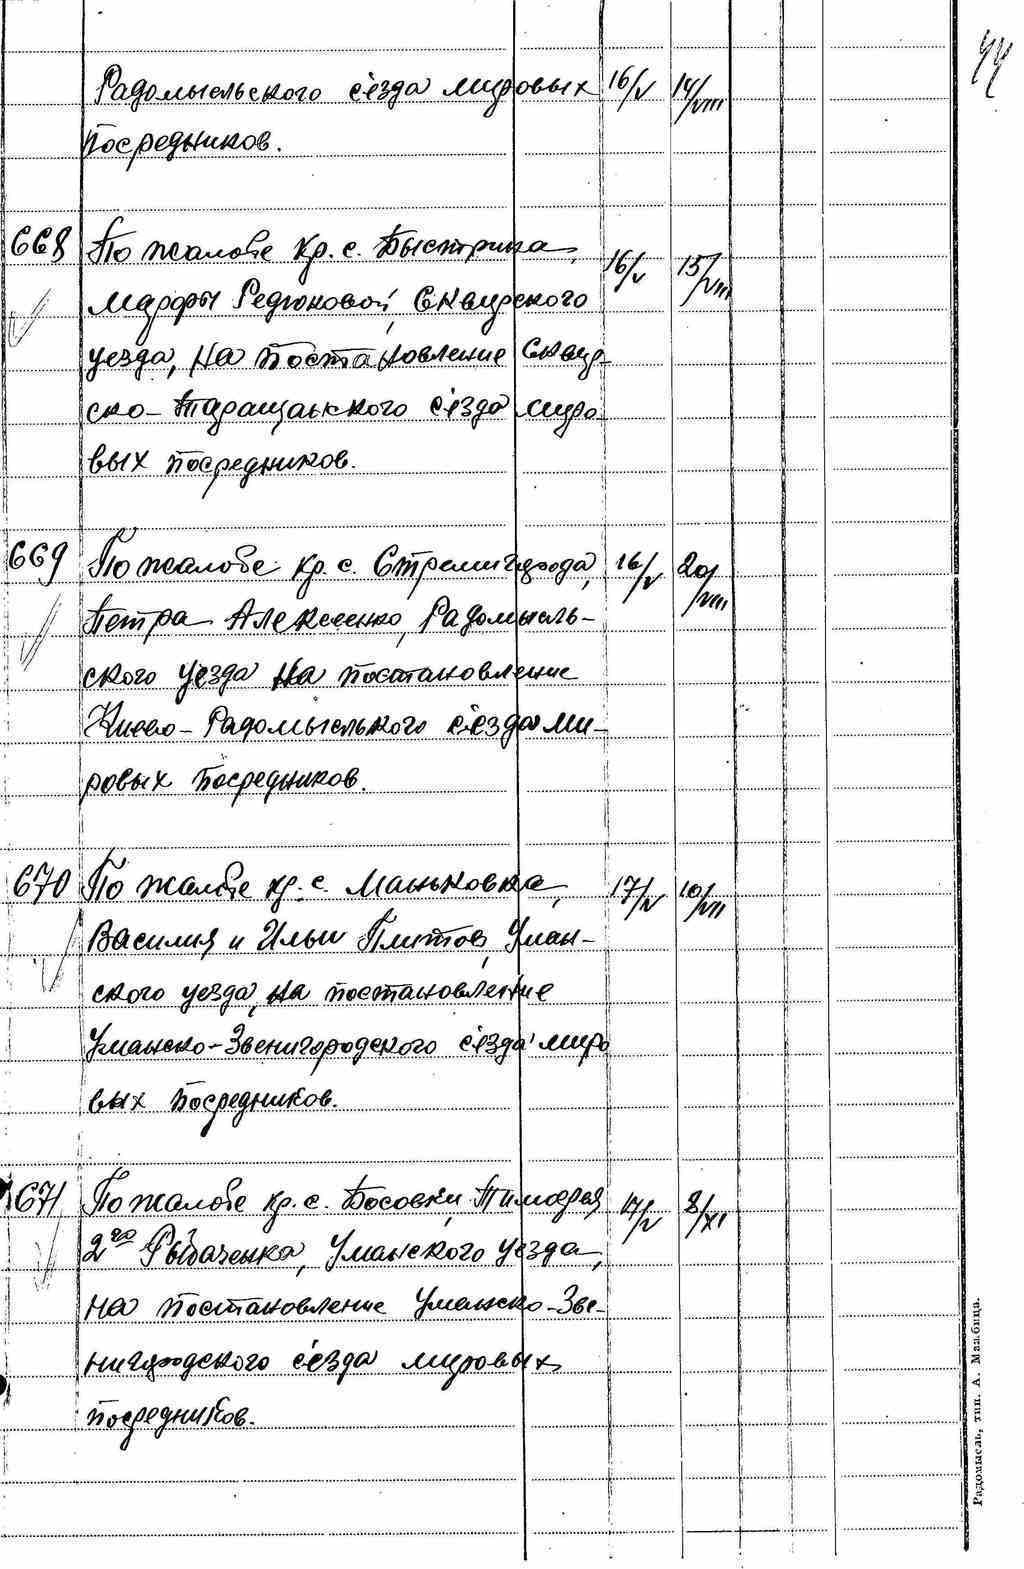 44
Радомысльского сезда мировых 16/V 14/VIII
посредников.
668 По жалобе кр. с. Быстрика,
Марфы Редюковой, Сквирского 16/V 15/VIII
уезда, на постановление Сквир-
ско-Таращанского сезда миро-
вых посредников.
669 По жалобе кр. с. Стремигорода, 16/V 20/VIII
Петра Алексеенко, Радомысль-
ского уезда на постановление
Киево-Радомысльского сезда ми-
ровых посредников.
670 По жалобе кр. с. Маньковка, 17/V 10/VII
Василия и Ильи Плитов, Уман-
ского уезда, на постановление
Уманско-Звенигородского сезда миро
вых посредников.
671 По жалобе кр. с. Босовки, Тимофея 17/V 8/XI
2го Рыбаченка, Уманского уезда,
на постановление Уманско-Зве-
нигородского сезда мировых
посредников.
Радомысль, тип. А. Маз.бица.